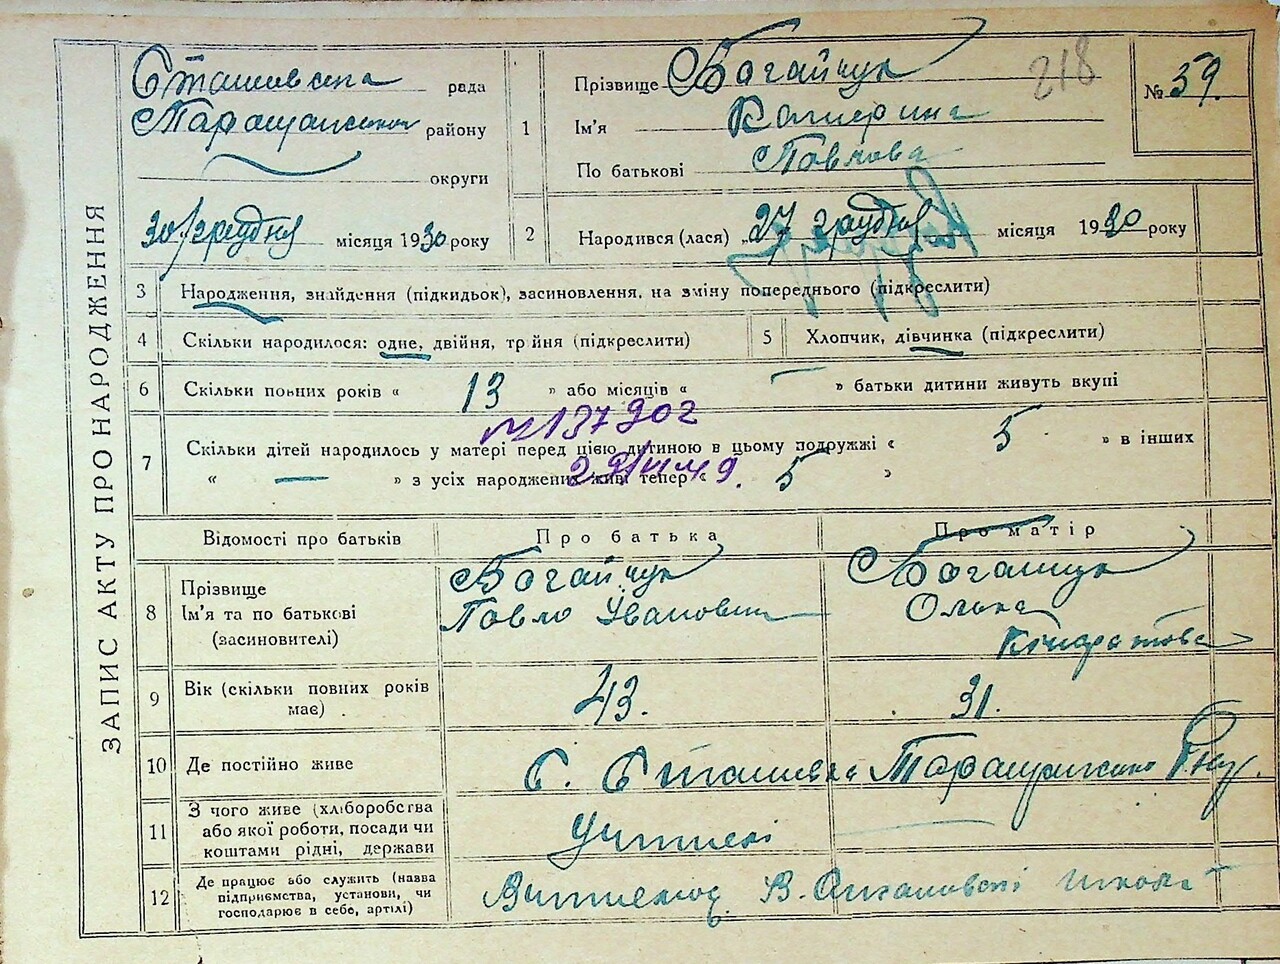 ЗАПИС АКТУ ПРО НАРОДЖЕННЯ
рада
району
округи
30/грудня місяця 1930 року
1
Прізвище Богайчук
Ім'я Катерина
По батькові Павлова
218
№ 59.
2
Народився (лася) „27 грудня місяця 1930 року
3
Народження, знайдення (підкидьок), засиновлення, на зміну попереднього (підкреслити)
4
Скільки народилося: одне, двійня, тройня (підкреслити)
5
Хлопчик, дівчинка (підкреслити)
6
Скільки повних років « 13 » або місяців « – » батьки дитини живуть вкупі
137902
7
Скільки дітей народилось у матері перед цією дитиною в цьому подружжі « 5 » в інших
« — » з усіх народжених живі тепер « 5 »
Відомості про батьків
Про батька
Про матір
8
Прізвище
Ім'я та по батькові
(засиновителі)
Богайчук
Павло Іванович
Богайчук
Ольга
9
Вік (скільки повних років
має)
43.
31.
10
Де постійно живе
с.
11
З чого живе (хліборобства
або якої роботи, посади чи
коштами рідні, держави
12
Де працює або служить (назва
підприємства, установи, чи
господарює в себе, артілі)
Вчителює в
школі